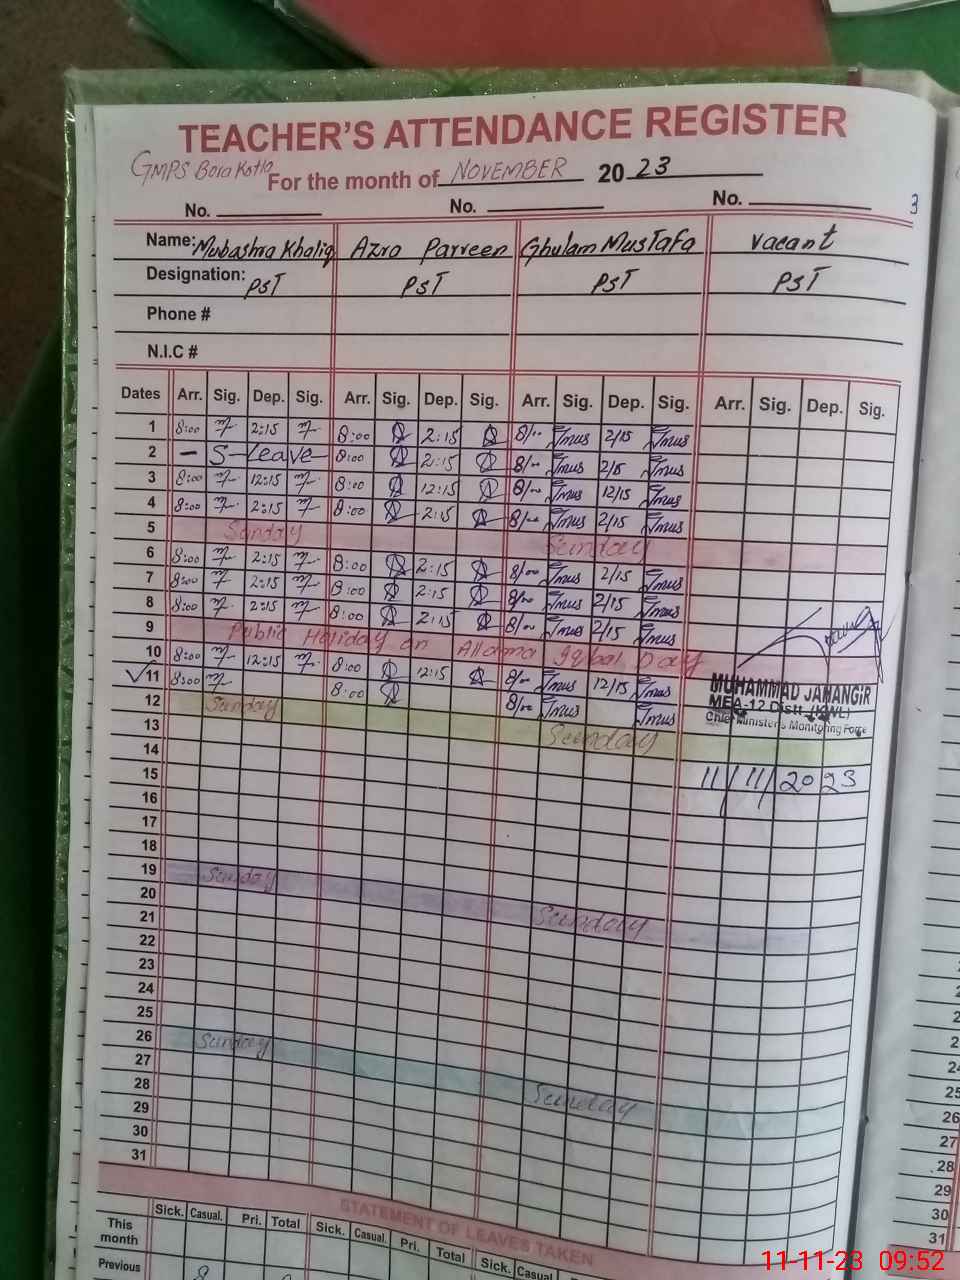 TEACHER'S ATTENDANCE REGISTER
GMPS Bora Kotla
For the month of NOVEMBER 2023
No. No. No. 3
Name: Mubashra Khaliq Azra Parveen Ghulam Mustafa Vacant
Designation: PST PST PST PST
Phone #
N.I.C #
Dates Arr. Sig. Dep. Sig. Arr. Sig. Dep. Sig. Arr. Sig. Dep. Sig. Arr. Sig. Dep. Sig.
1 8:00 2:15 8:00 2:15 8/00 Gmus 2/15 Gmus
2 – S–Leave 8:00 2:15 8/00 Gmus 2/15 Gmus
3 8:00 12:15 8:00 12:15 8/00 Gmus 12/15 Gmus
4 8:00 2:15 8:00 2:15 8/00 Gmus 2/15 Gmus
5 Sunday Sunday
6 8:00 2:15 8:00 2:15 8/00 Gmus 2/15 Gmus
7 8:00 2:15 8:00 2:15 8/00 Gmus 2/15 Gmus
8 8:00 2:15 8:00 2:15 8/00 Gmus 2/15 Gmus
9 Public Holiday on Allama Iqbal Day
10 8:00 12:15 8:00 12:15 8/00 Gmus 12/15 Gmus
✓11 8:00 8:00 8/00 Gmus Gmus
12 Sunday Sunday
13
14
15
16
17
18
19 Sunday Sunday
20
21
22
23
24
25
26 Sunday Sunday
27
28
29
30
31
MUHAMMAD JAHANGIR
MEA-12 Distt. (KWL)
Chief Minister's Monitoring Force
11/11/2023
STATEMENT OF LEAVES TAKEN
Sick. Casual. Pri. Total Sick. Casual. Pri. Total Sick. Casual.
This month
Previous 8
24
25
26
27
28
29
30
31
11-11-23 09:52